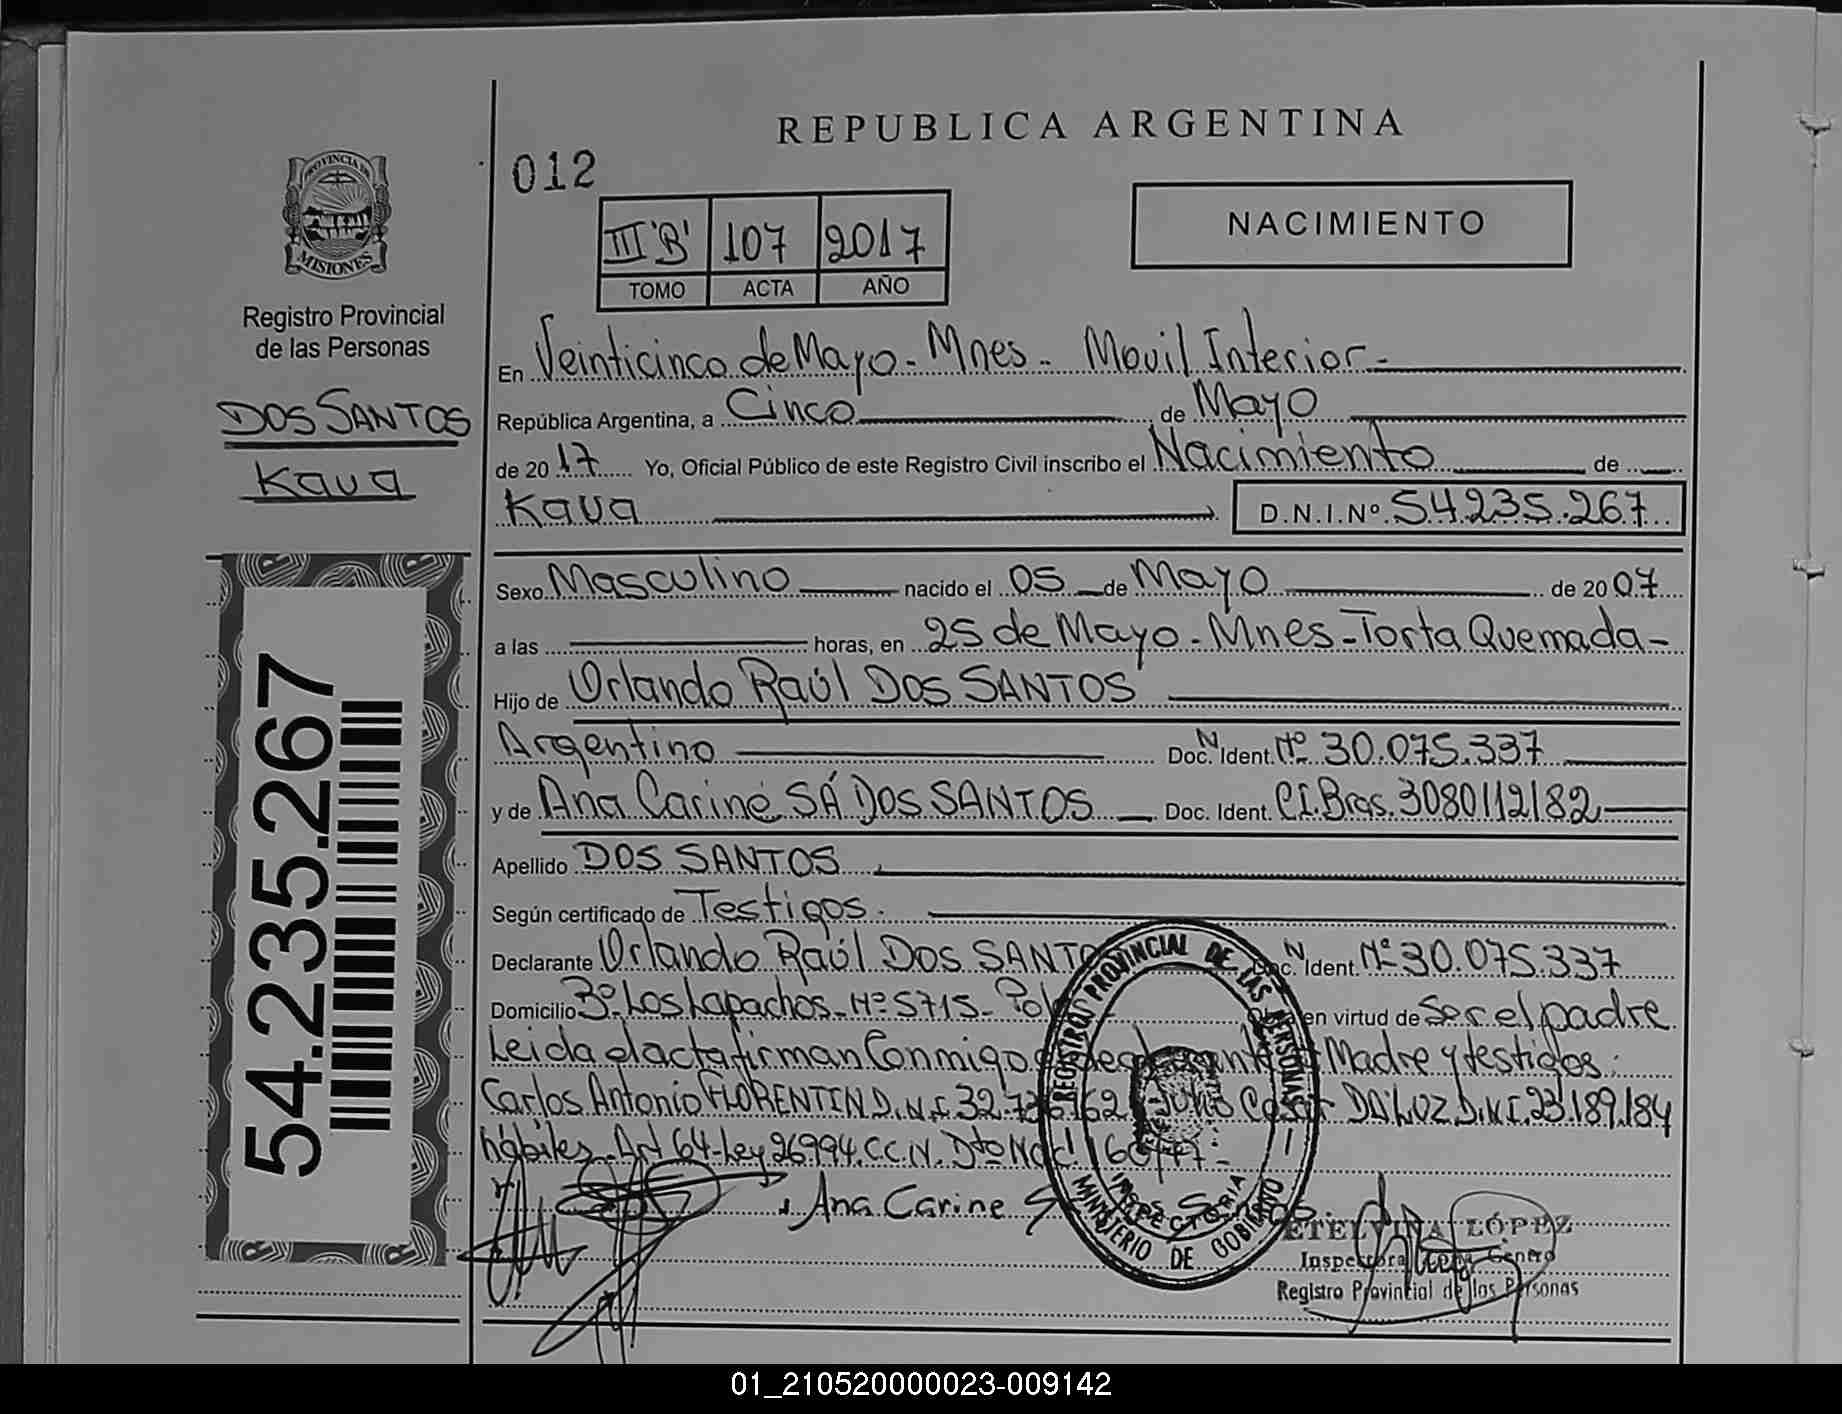 REPUBLICA ARGENTINA
012
NACIMIENTO
III "B" 107 2017
TOMO ACTA AÑO
PROVINCIA DE
MISIONES
Registro Provincial
de las Personas
DOS SANTOS
Kaua
54.235.267
En Veinticinco de Mayo - Mnes - Movil Interior -
República Argentina, a Cinco de Mayo
de 2017 Yo, Oficial Público de este Registro Civil inscribo el Nacimiento de
Kaua D.N.I. Nº 54.235.267
Sexo Masculino nacido el 05 de Mayo de 2007
a las horas, en 25 de Mayo - Mnes - Torta Quemada -
Hijo de Orlando Raúl DOS SANTOS
Argentino Doc. N Ident. Nº 30.075.337
y de Ana Carine SÁ DOS SANTOS Doc. Ident. C.I. Bras. 3080112182
Apellido DOS SANTOS
Según certificado de Testigos.
Declarante Orlando Raúl DOS SANTO Doc. N Ident. Nº 30.075.337
Domicilio Bº Los Lapachos - Nº 5715 - en virtud de ser el padre
Leida el acta firman Conmigo Madre y testigos:
Carlos Antonio FLORENTIN D.N.I. 32.736.162 - Julio Cesar DA LUZ D.N.I. 23.189.184
hábiles - Art 64 - Ley 26994. C.C.N. Dto Nac
Ana Carine
REGISTRO PROVINCIAL DE LAS PERSONAS
INSPECTORIA
MINISTERIO DE GOBIERNO
ETELVINA LÓPEZ
Inspectora Zona Centro
Registro Provincial de las Personas
01_210520000023-009142